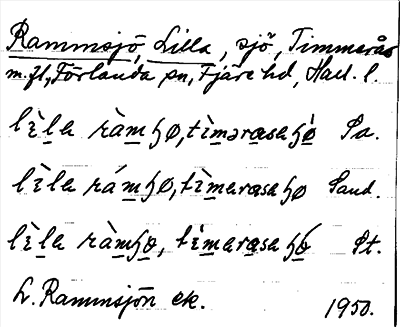 Rammsjö, Lilla, sjö, Timmerås
m.fl, Förlanda sn, Fjäre hd, Hall. l.
lìla ràmʃø, tìməraesaʃø Sa.
lìla rámʃø, tìmaraesaʃø Sand.
lìla ràmʃø, tìmaraesaʃø St.
L. Rammsjön ek.
1950.